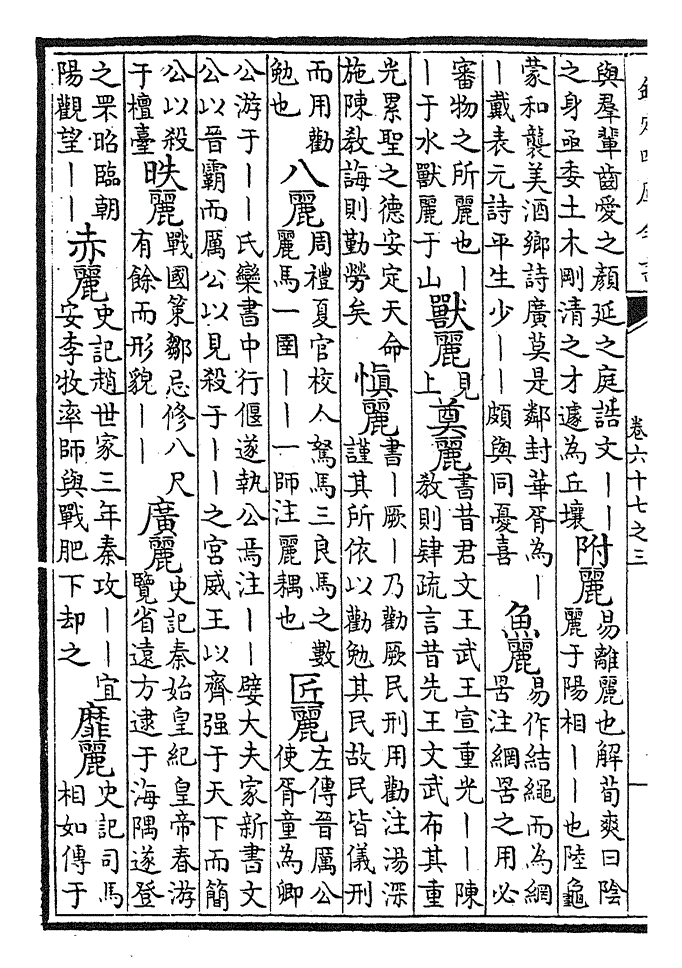 欽定四庫全書
卷六十七之三
一
與羣輩齒愛之顏延之庭誥文｜｜
之身亟委土木剛清之才遽為丘壤
附麗
易離麗也解荀爽曰陰
麗于陽相｜｜也陸龜
蒙和襲美酒鄉詩廣莫是鄰封華胥為｜
｜戴表元詩平生少｜｜頗與同憂喜
魚麗
易作結繩而為網
罟注網罟之用必
審物之所麗也｜
｜于水獸麗于山
獸麗
見
上
奠麗
書昔君文王武王宣重光｜｜陳
敎則肄疏言昔先王文武布其重
光累聖之德安定天命
施陳敎誨則勤勞矣
慎麗
書｜厥｜乃勸厥民刑用勸注湯深
謹其所依以勸勉其民故民皆儀刑
而用勸
勉也
八麗
周禮夏官校人駑馬三良馬之數
麗馬一圉｜｜一師注麗耦也
匠麗
左傳晉厲公
使胥童為卿
公游于｜｜氏欒書中行偃遂執公焉注｜｜嬖大夫家新書文
公以晉霸而厲公以見殺于｜｜之宮威王以齊强于天下而簡
公以殺
于檀臺
昳麗
戰國策鄒忌修八尺
有餘而形貌｜｜
廣麗
史記秦始皇紀皇帝春游
覽省遠方逮于海隅遂登
之罘昭臨朝
陽觀望｜｜
赤麗
史記趙世家三年秦攻｜｜宜
安李牧率師與戰肥下却之
靡麗
史記司馬
相如傳于